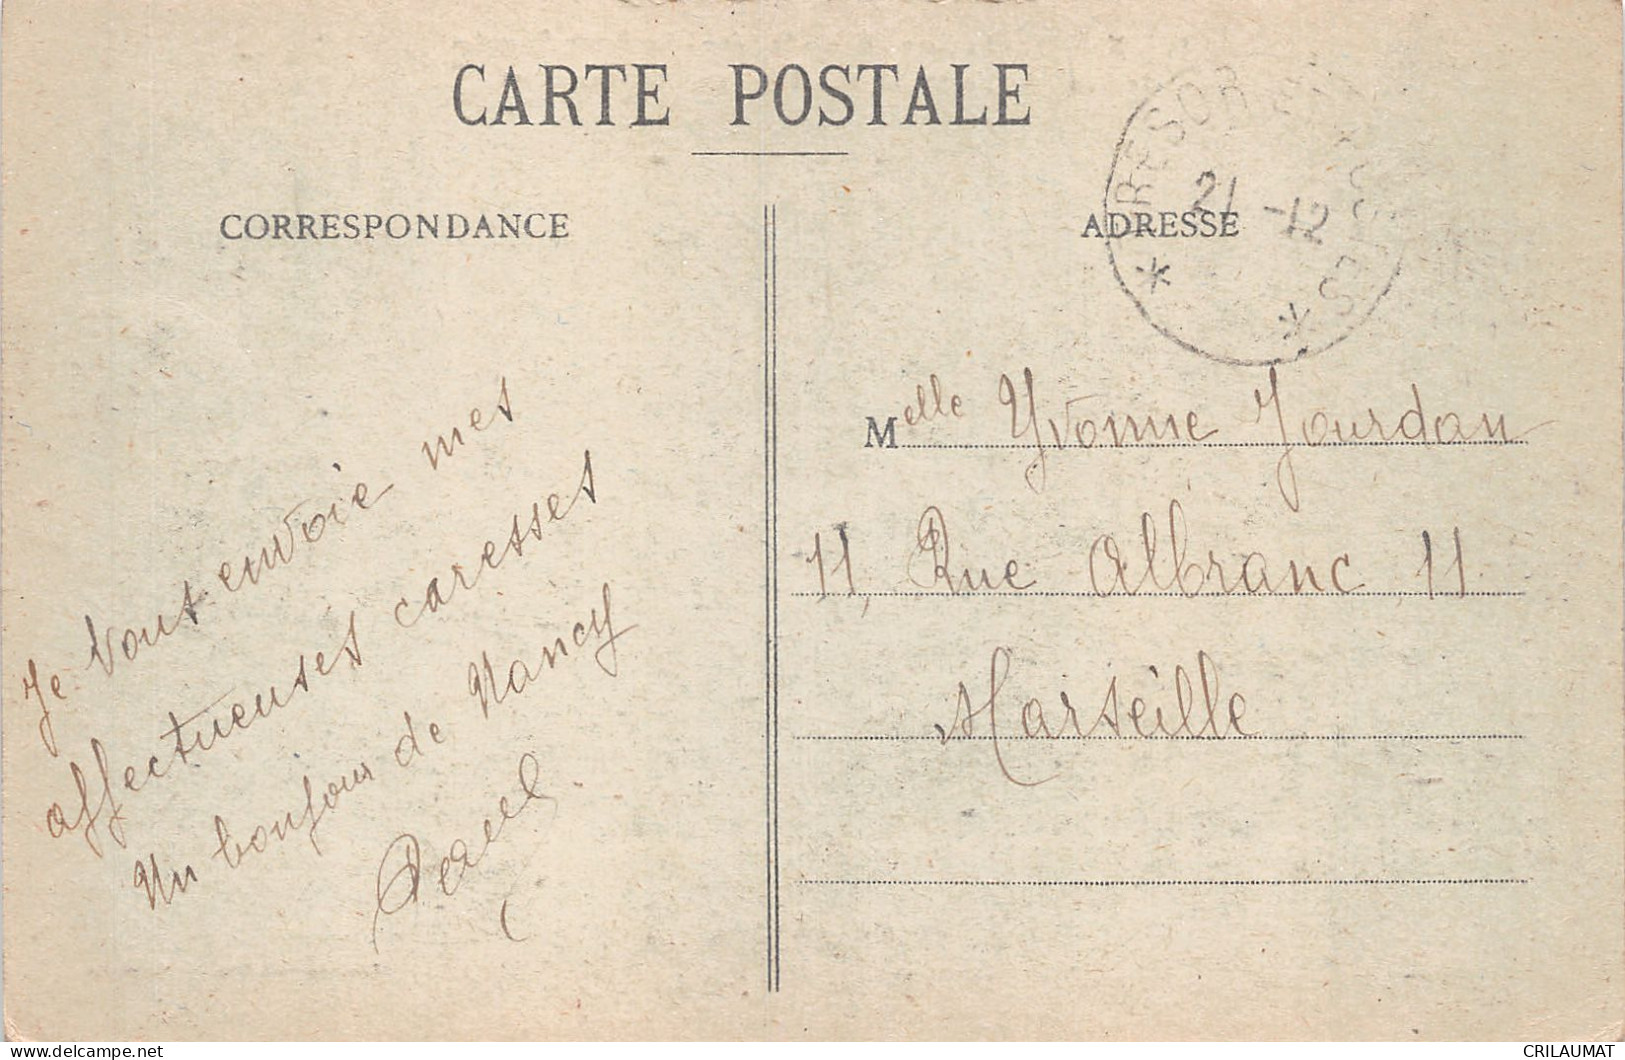 CARTE POSTALE
CORRESPONDANCE
ADRESSE
TRESOR ET POSTES
21 -12
Je vous envoie mes
affectueuses caresses
Un bonjour de Nancy
Melle Yvonne Jourdan
11, Rue Albranc, 11
Marseille
CRILAUMAT